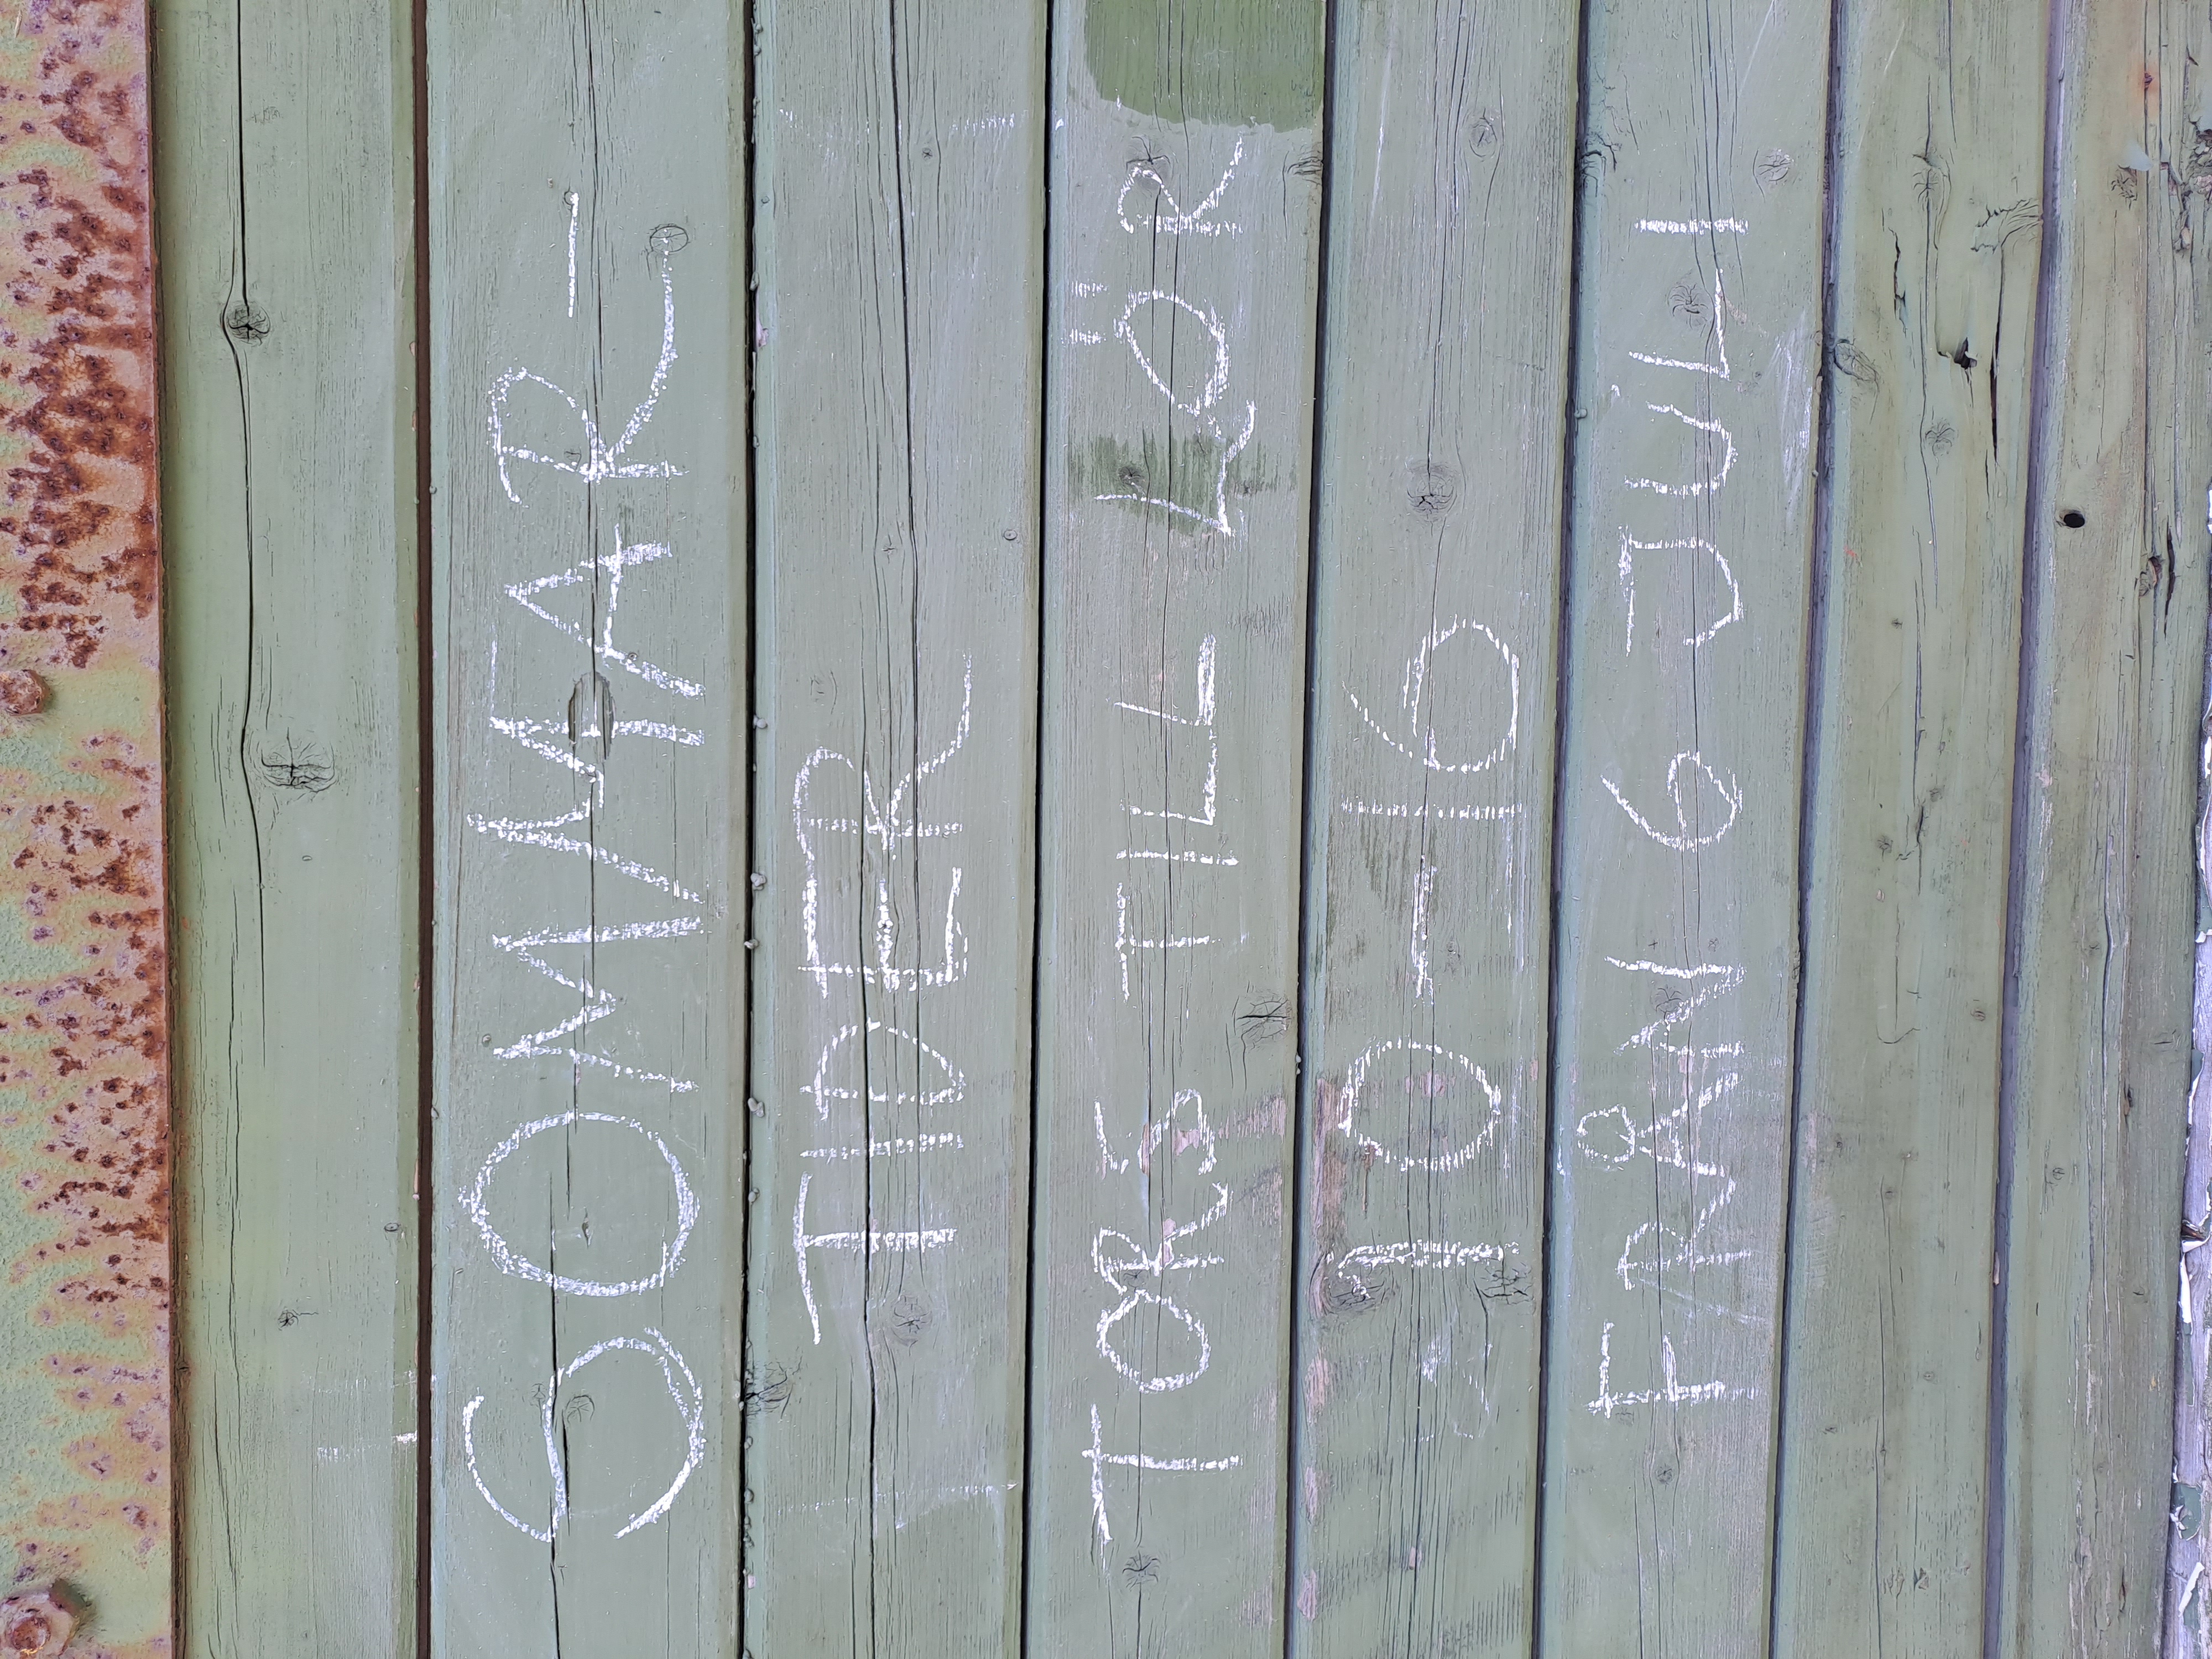 SOMMAR-
TIDER
TORS TILL LÖR
10-16
FRÅN 6 JULI